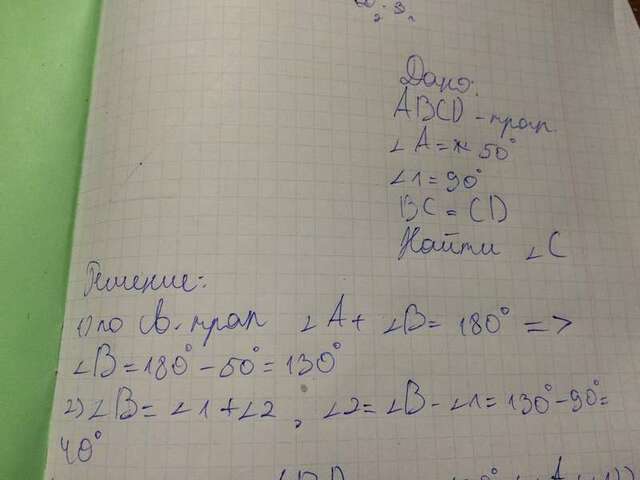 Дано:
ABCD - трап.
∠A = 50°
∠1 = 90°
BC = CD
Найти ∠C
Решение:
1) по св. трап ∠A + ∠B = 180° =>
∠B = 180° - 50° = 130°
2) ∠B = ∠1 + ∠2, ∠2 = ∠B - ∠1 = 130° - 90° =
40°